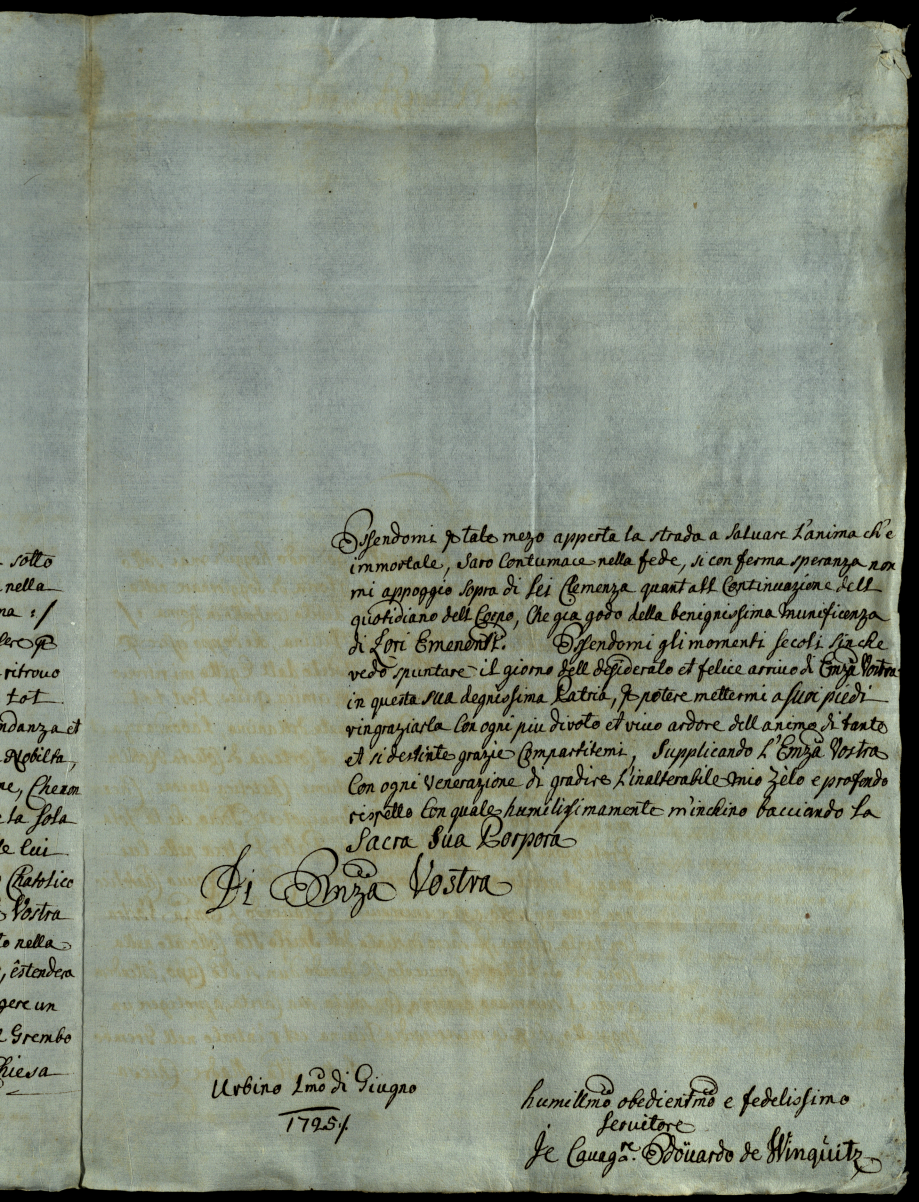 sotto
nella
na :/
ritrovo
tot
ndanza et
Nobilta,
ne, Che non
la sola
le lui
Chatolico
Vostra
to nella
, estendera
gere un
l Grembo
hiesa
Essendomi p tale mezo apperta la strada a saluare L'anima ch'e
immortale, saro Contumace nella fede, si con ferma speranza non
mi appoggio sopra di lei Clemenza quant all Continuazione dell
quotidiano dell Corpo, Che gia godo della benignissima munificenza
di Lori Essendomi gli momenti secoli sin che
vedo spuntare il giorno dell desiderato et felice arriuo di Emza Vostra
in questa sua degnissima Patria, p potere mettermi a suoi piedi
ringraziarla Con ogni piu divoto et viuo ardore dell anima di tante
et si destinte grazie Compartitemi, Supplicando L'Emza Vostra
Con ogni Venerazione di gradire L'inalterabile mio Zèlo e profondo
rispetto Con quale humilissimamente m'inchino bacciando La
Sacra Sua Porpora
Di Emza Vostra
Urbino 1mo di Giugno
1725/.
humillmo obedientmo e fedelissimo
seruitore
Edoüardo de Winqüitz